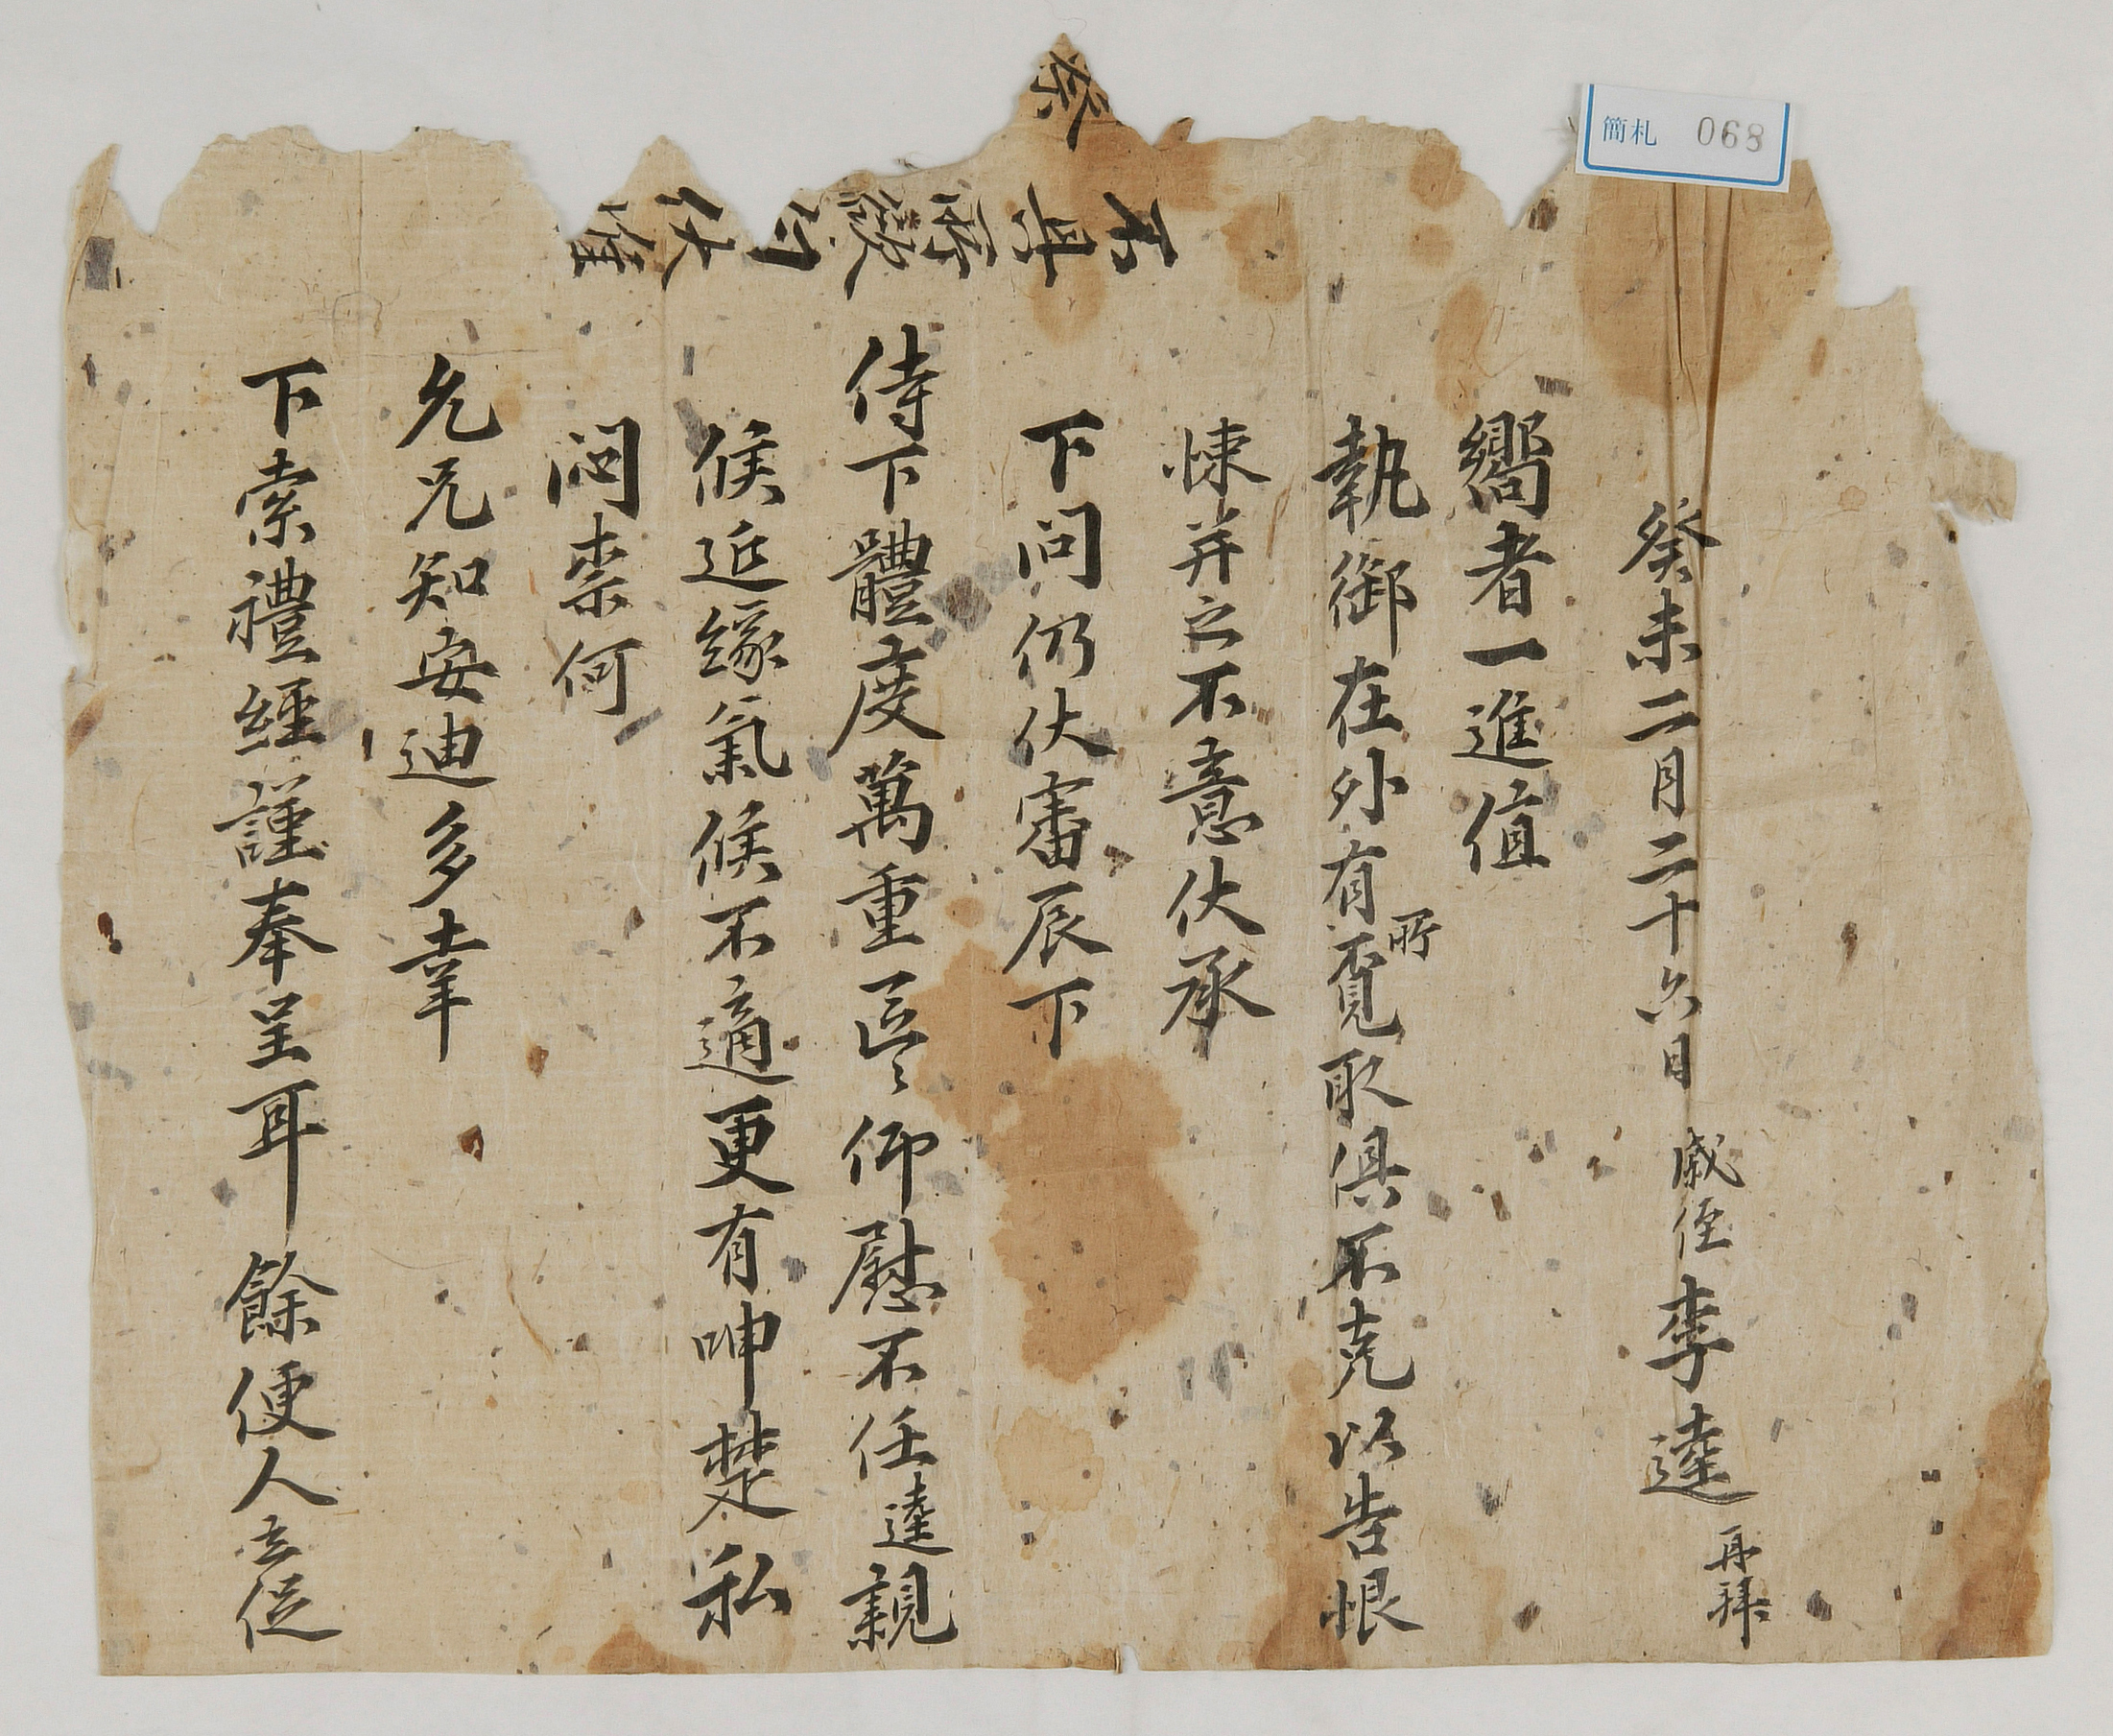 嚮者一進值
執御在外有所覓取俱不克以告恨
悚并之不意伏承
下問仍伏審辰下
侍下體度萬重區〻仰慰不任逵親
候近緣氣候不適更有呻楚私
悶柰何
允兄知安迪多幸
下索禮經謹奉呈耳餘便人立促
不 伏惟
癸未二月二十六日 戚侄李逵再拜
簡札 068